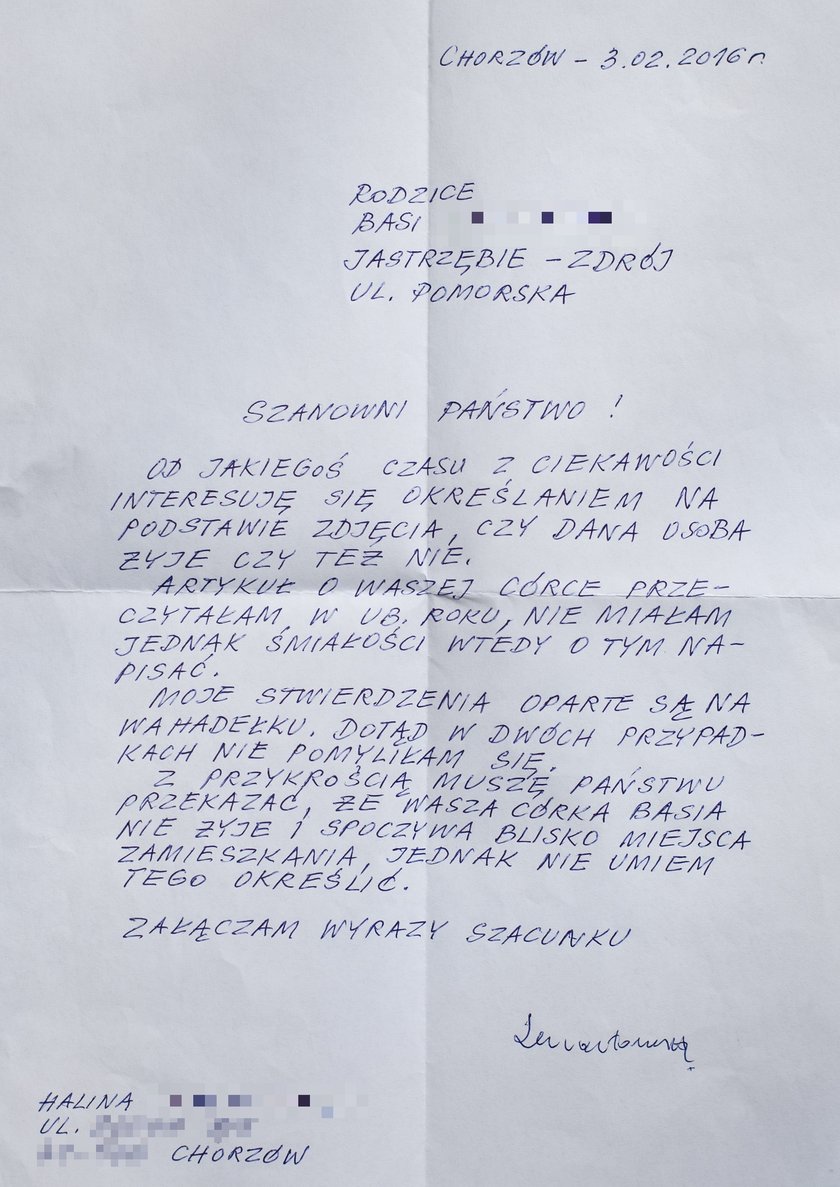 CHORZÓW - 3.02.2016 r.
RODZICE
BASI
JASTRZĘBIE - ZDRÓJ
UL. POMORSKA
SZANOWNI PAŃSTWO !
OD JAKIEGOŚ CZASU Z CIEKAWOŚCI
INTERESUJĘ SIĘ OKREŚLANIEM NA
PODSTAWIE ZDJĘCIA, CZY DANA OSOBA
ŻYJE CZY TEŻ NIE.
ARTYKUŁ O WASZEJ CÓRCE PRZE-
CZYTAŁAM W UB. ROKU, NIE MIAŁAM
JEDNAK ŚMIAŁOŚCI WTEDY O TYM NA-
PISAĆ.
MOJE STWIERDZENIA OPARTE SĄ NA
WAHADEŁKU. DOTĄD W DWÓCH PRZYPAD-
KACH NIE POMYLIŁAM SIĘ.
Z PRZYKROŚCIĄ MUSZĘ PAŃSTWU
PRZEKAZAĆ, ŻE WASZA CÓRKA BASIA
NIE ŻYJE I SPOCZYWA BLISKO MIEJSCA
ZAMIESZKANIA, JEDNAK NIE UMIEM
TEGO OKREŚLIĆ.
ZAŁĄCZAM WYRAZY SZACUNKU
HALINA
UL.
CHORZÓW